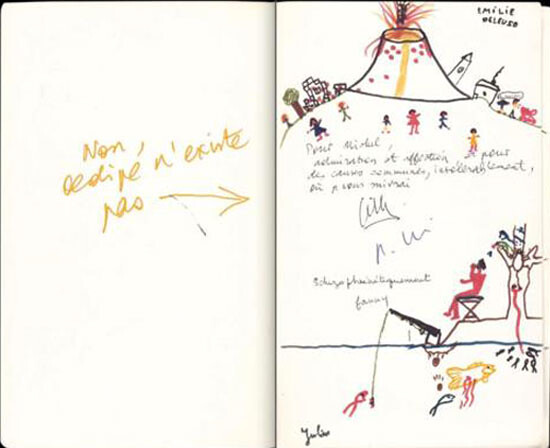 Non,
œdipe n'existe
pas
EMILIE
DELEUZE
Pour Michel,
admiration et affection pour
des causes communes, intolérablement,
où je vous suivrai
Gilles
Schizophréniquement
fanny
Julien